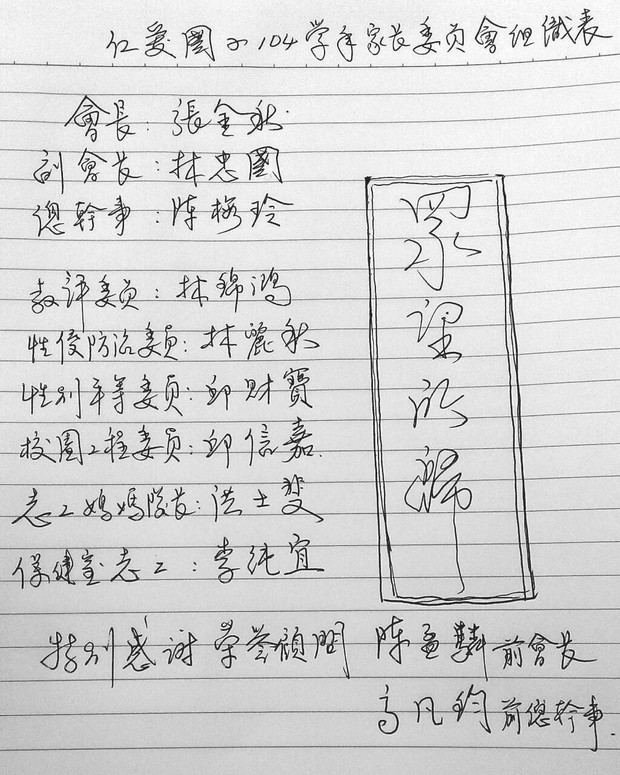 仁愛國小104學年家長委員會組織表
會長：張金秋
副會長：林忠國
總幹事：陳梅玲
教評委員：林錦鴻
性侵防治委員：林麗秋
性別平等委員：邱財寶
校園工程委員：邱信嘉
志工媽媽隊長：洪士斐
保健室志工：李純宜
眾望所歸
特別感謝榮譽顧問 陳孟麟前會長
高凡鈞前總幹事.